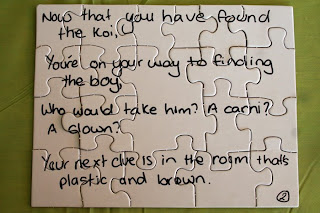 Now that you have found
the Koi,
You're on your way to finding
the boy,
Who would take him? A carni?
A clown?
Your next clue is in the room thats
plastic and brown.
2